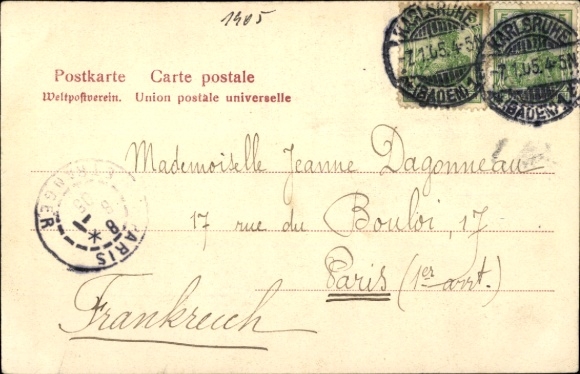 1905
KARLSRUHE
-7.1.05.4-5N
(BADEN)
KARLSRUHE
-7.1.05.4-5N
(BADEN)
Postkarte Carte postale
Weltpostverein. Union postale universelle
Mademoiselle Jeanne Dagonneau
17 rue du Bouloi, 17
Paris (1er arrt.)
Frankreich
PARIS
ETRANGER
8
1
05